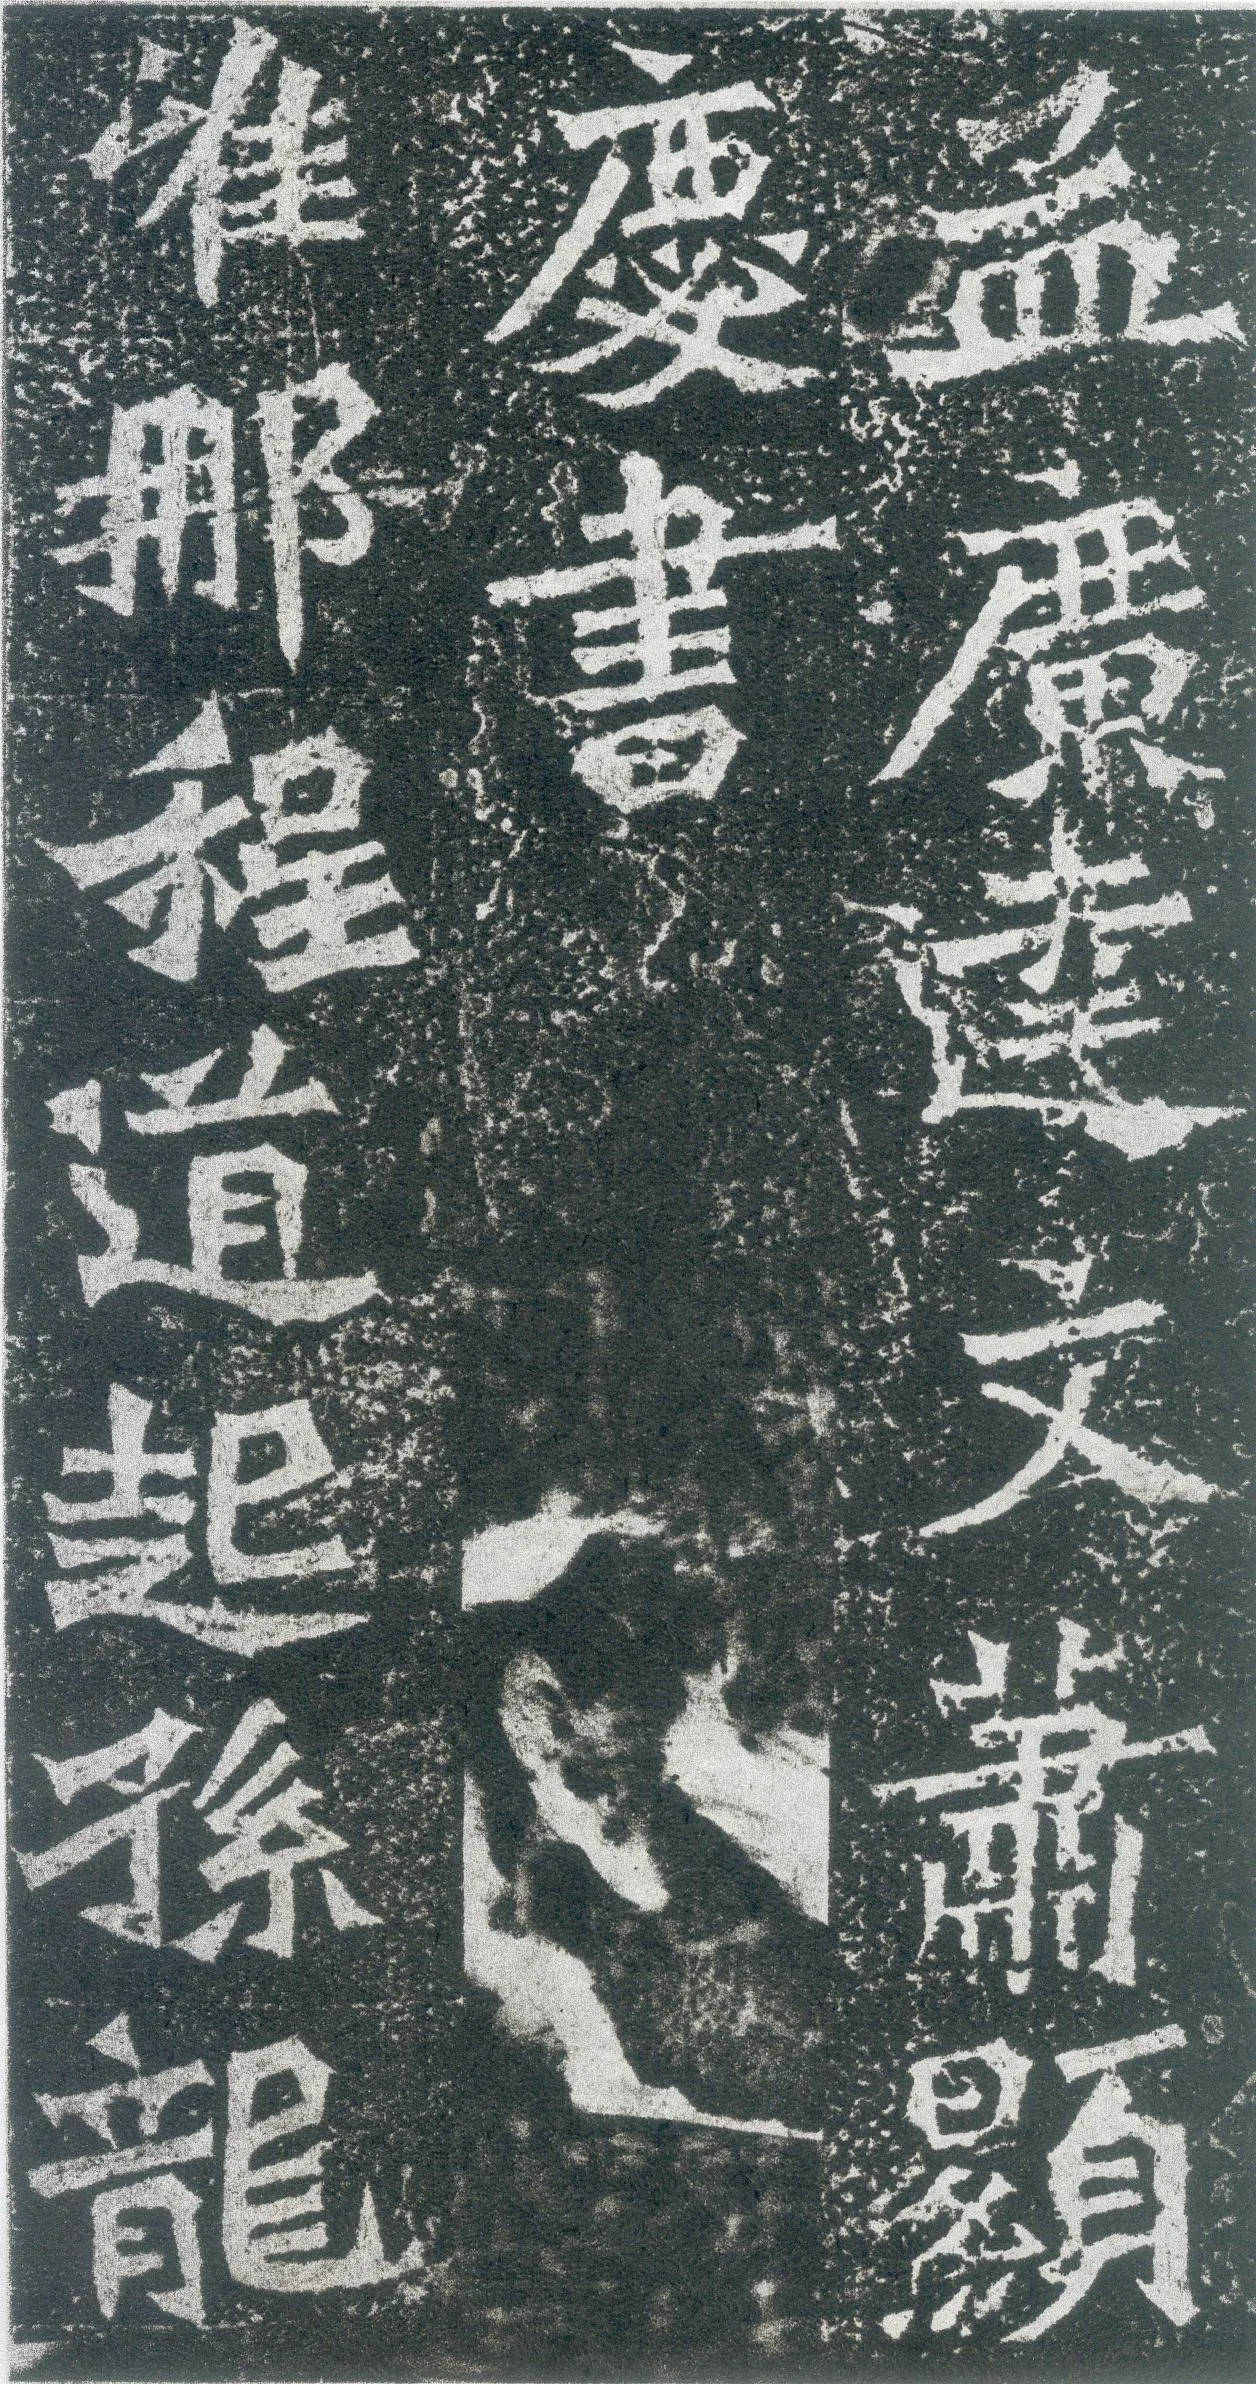 孟廣達文蕭顯
慶書
准那程道起孫龍